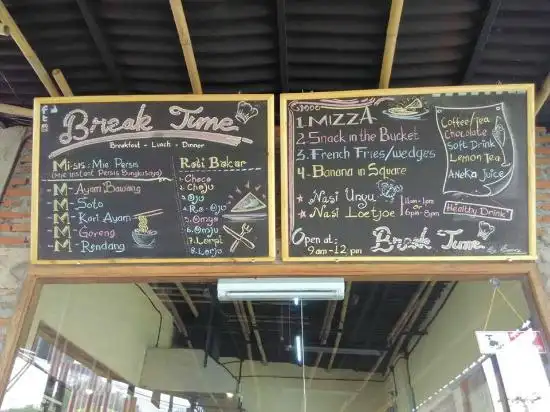 Break Time
Breakfast - Lunch - Dinner
Mi-sis : Mie Persis
(Mie instant Persis Bungkusnya)
M - Ayam Bawang
M - Soto
M - Kari Ayam
M - Goreng
M - Rendang
Roti Bakar
1. Choco
2. Choju
3. Oju
5. Omga
6. Omju
7. Lorpi
8. Lorju
1. MIZZA
2. Snack in the Bucket
3. French Fries/wedges
4. Banana in Square
★ Nasi Unyu
★ Nasi Loetjoe
11am - 1pm
or
6pm - 8pm
Open at :
9am - 12pm
Break Time
Coffee/Tea
Chocolate
Soft Drink
Lemon Tea
Aneka Juice
Healthy Drink